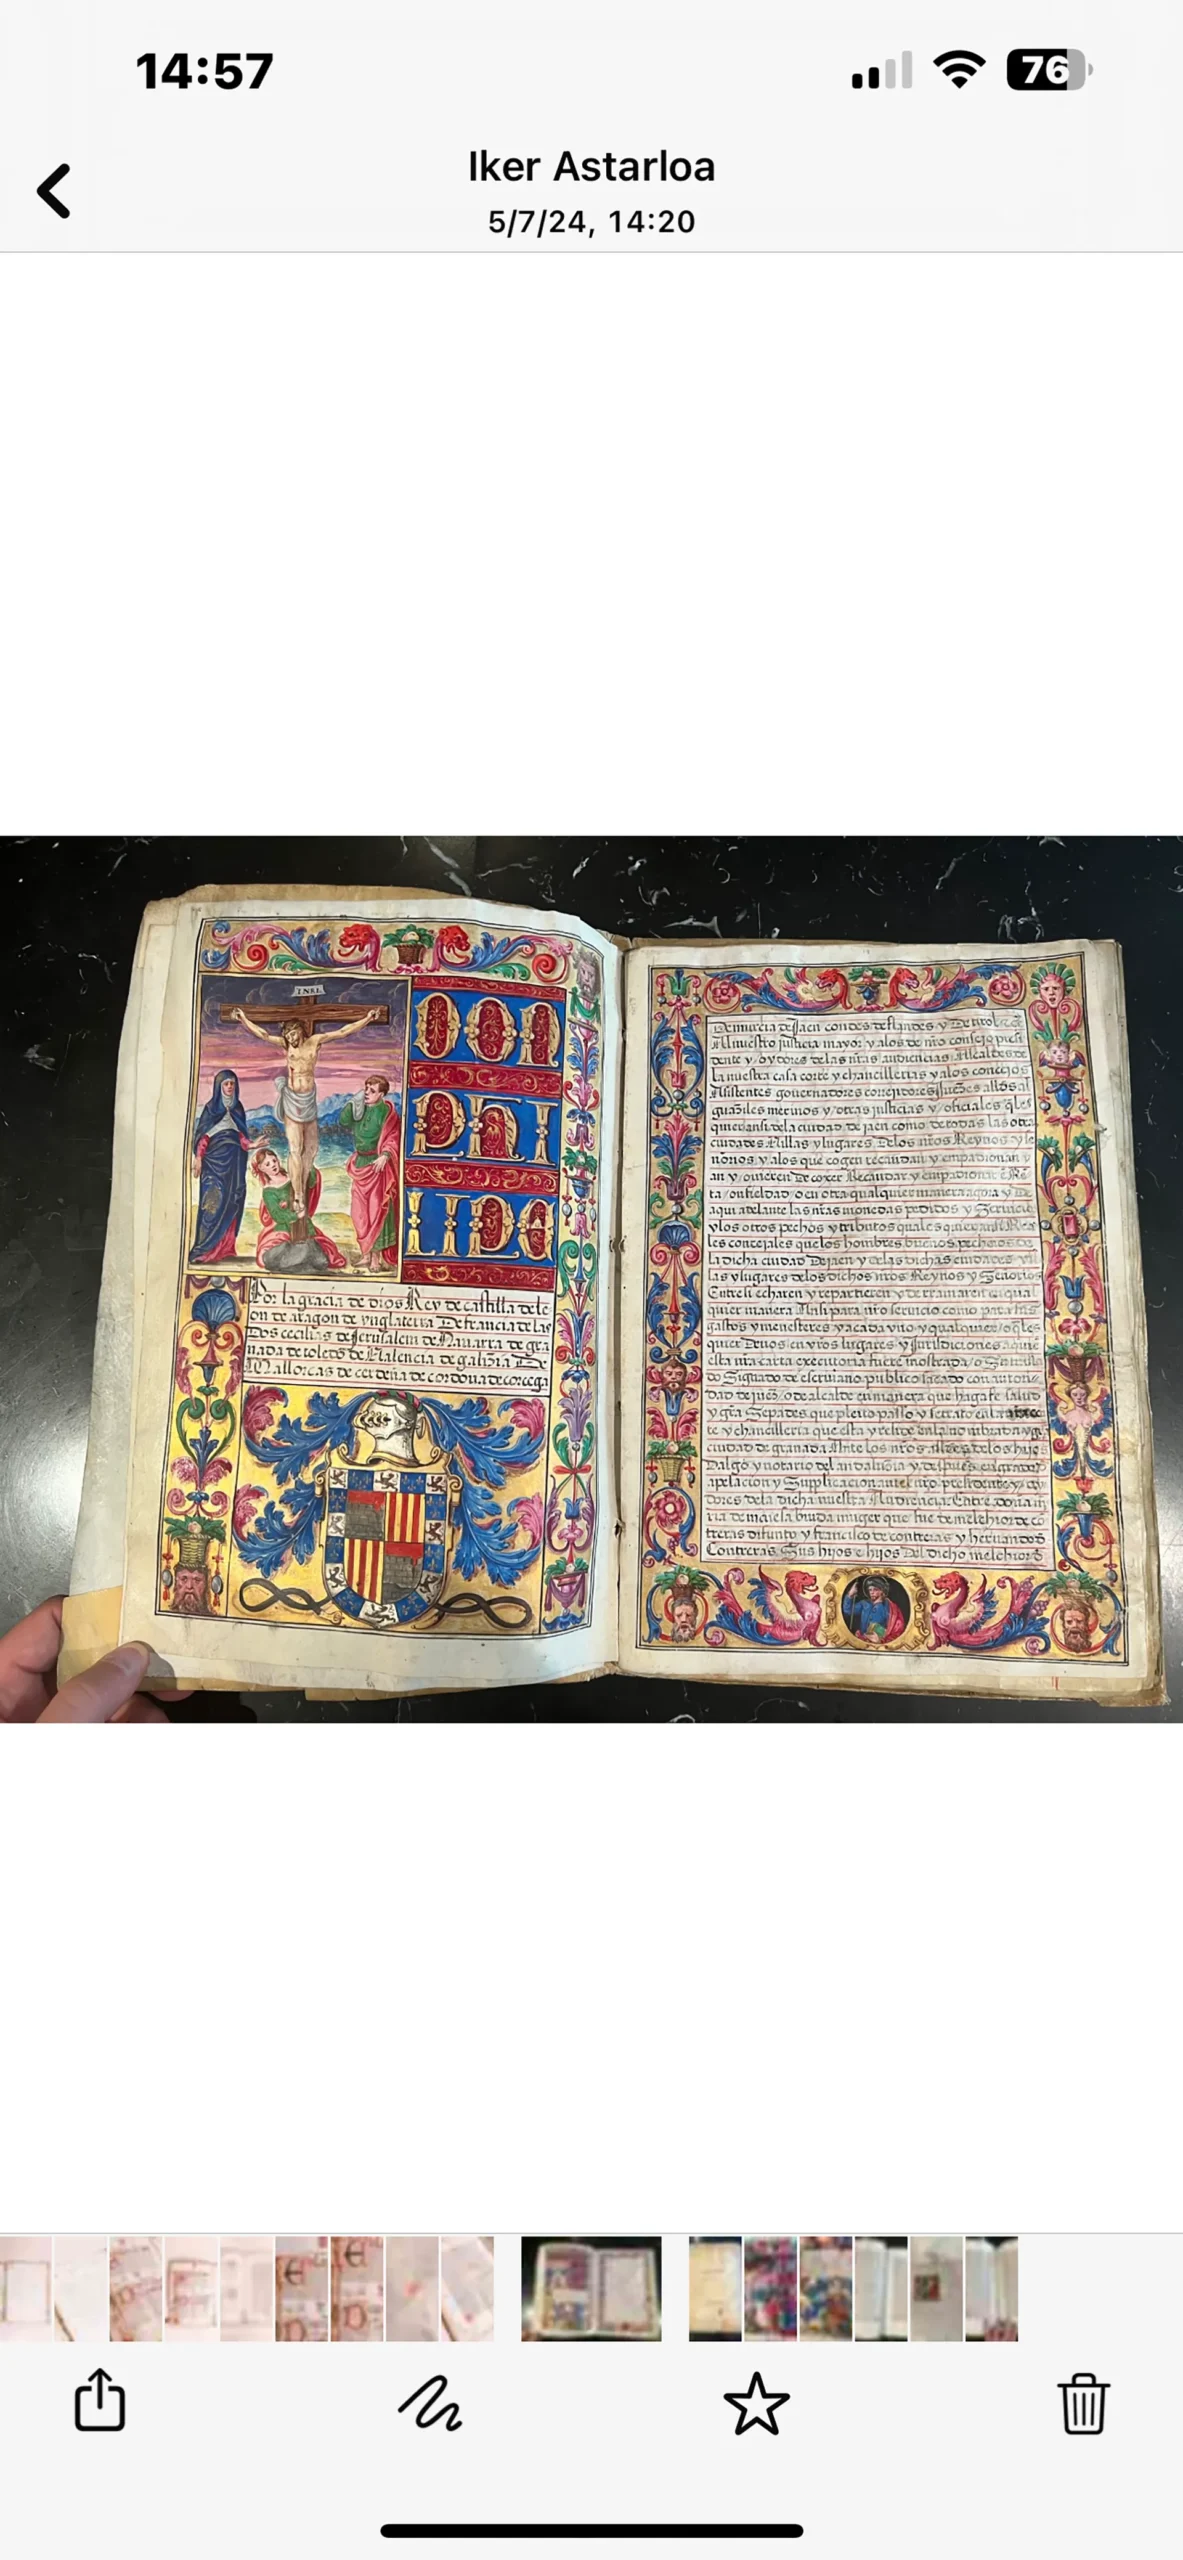 14:57
76
Iker Astarloa
5/7/24, 14:20
INRI
DON
PHI
LIPE
Por la gracia de dios Rey de castilla de le
on de aragon de ynglaterra De francia de las
Dos cecilias de Jerusalem de Nauarra de gra
nada de toledo de Valencia de galizia De
Mallorcas de cerdeña de cordoua de corcega
De murcia de Jaen condes de flandes y De tirol
Al nuestro justicia mayor y alos de nro consejo presi
dente y oydores de las nras audiencias Alcaldes de
la nuestra casa corte y chancillerias y alos concejos
Asistentes gouernadores corregidores
merinos y otras justicias y oficiales
dela ciudad de jaen como de todas las otras
ciudades Villas y lugares Delos nros Reynos y se
ñorios y alos que cogen recaudan y empadronan y
De coger Recaudar y empadronar
en otra qualquier manera agora y De
aqui adelante las nras monedas pedidos y Seruicios
y los otros pechos y tributos
les concejales que los hombres buenos pecheros de
la dicha ciudad De jaen y de las dichas ciudades vi
las y lugares delos dichos nros Reynos y Señorios
Entre si echaren y repartieren y derramaren en qual
quier manera Ansi para nro seruicio como para
gastos y menesteres y a cada vno y qualquier
quier De vos en vros lugares y Jurisdiciones a quien
esta nra carta executoria fuere mostrada
do Signado de escriuano publico sacado con autori
dad de juez o de alcalde en manera que haga fe salud
y gra Sepades que pleito paso y se trato en la
te y chancilleria que esta y reside en la nombrada y gran
ciudad de granada Ante los nros alcaldes delos hijos
Dalgo y notario del andaluzia y despues en grado
apelacion y Supplicacion ante nro presidente y oy
dores dela dicha nuestra Audiencia Entre doña ma
ria de biuda muger que fue de melchior de co
treras difunto y francisco de contreras y hernando d
Contreras Sus hijos e hijos Del dicho melchior d